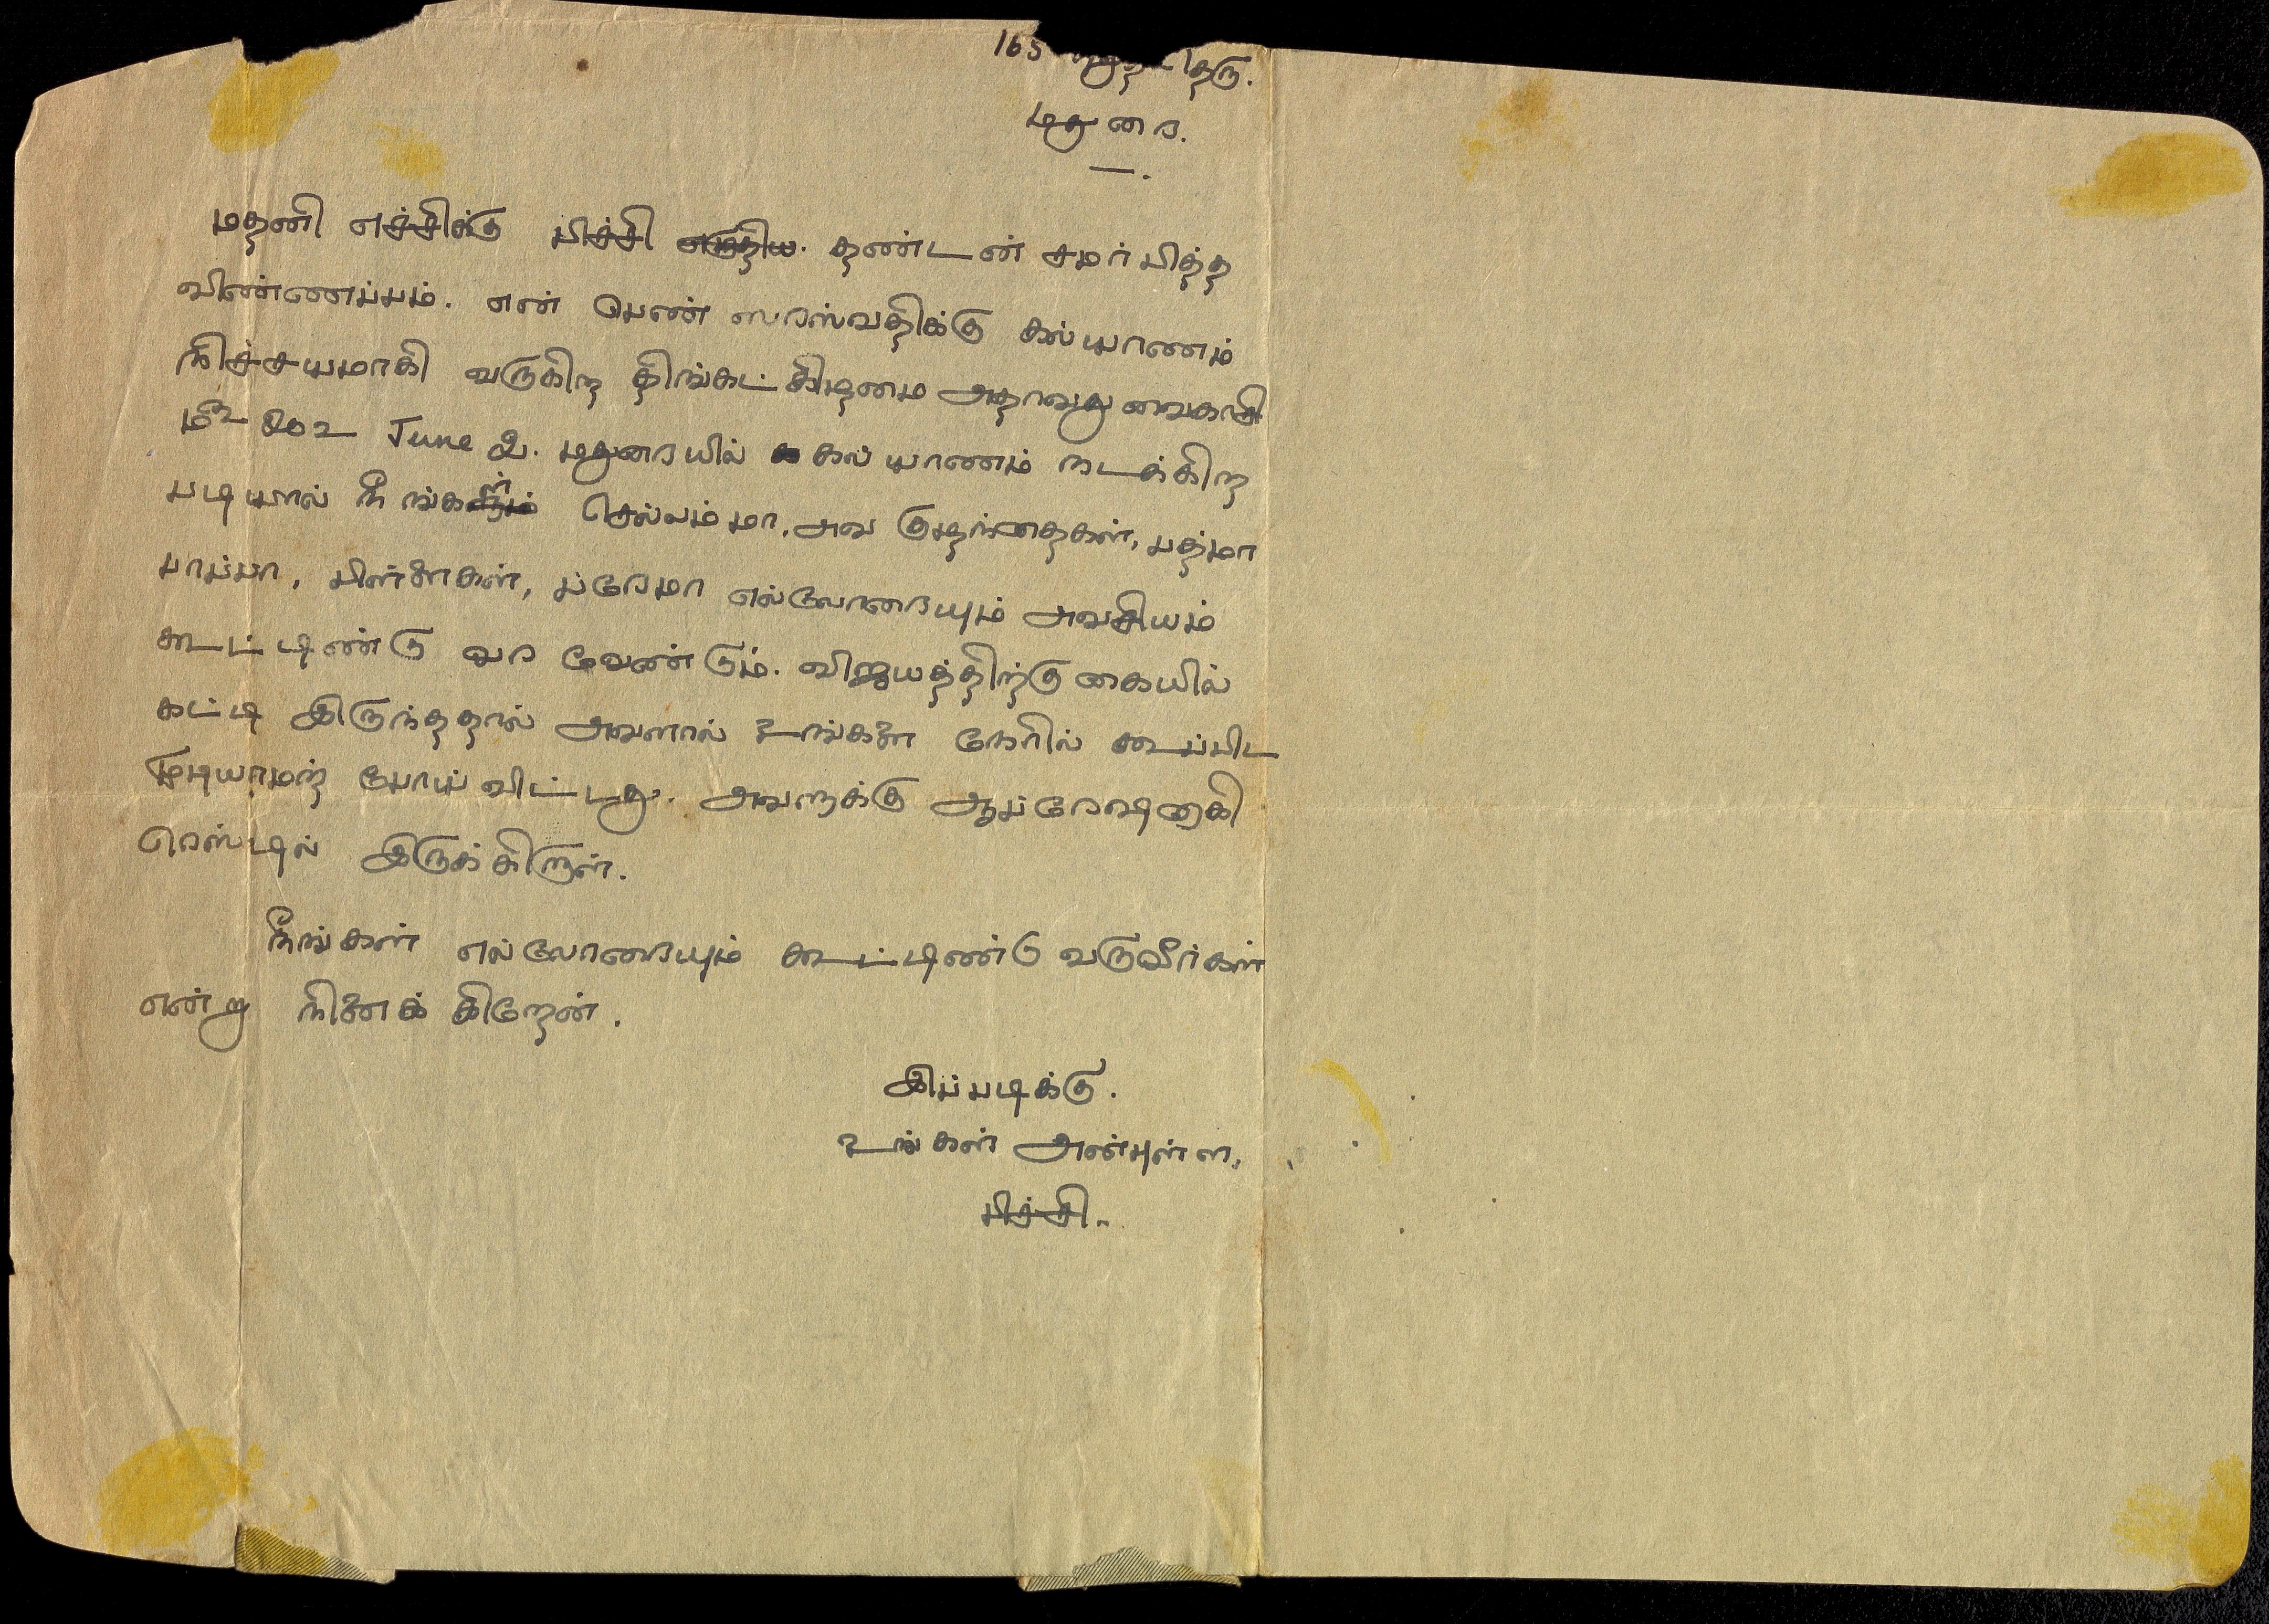 165 தெரு.
மதுரை.
மதனி எச்சிக்கு பிச்சி எழுதிய. தண்டன் சமர்பித்த
விண்ணப்பம். என் பெண் ஸரஸ்வதிக்கு கல்யாணம்
நிச்சயமாகி வருகிற திங்கட் கிழமை அதாவது வைகாசி
மீ 20௨ June 2. மதுரையில் கல்யாணம் நடக்கிற
படியால் நீங்கள் செல்லம்மா, அவ குழந்தைகள், பத்மா
பாப்பா, பிள்ளைகள், ப்ரேமா எல்லோரையும் அவசியம்
கூட்டிண்டு வர வேண்டும். விஜயத்திற்கு கையில்
கட்டி இருந்ததால் அவளால் உங்களை நேரில் கூப்பிட
முடியாமற் போய் விட்டது. அவளுக்கு ஆப்ரேஷனாகி
ரெஸ்டில் இருக்கிறாள்.
நீங்கள் எல்லோரையும் கூட்டிண்டு வருவீர்கள்
என்று நினைக்கிறேன்.
இப்படிக்கு.
உங்கள் அன்புள்ள,
பிச்சி.